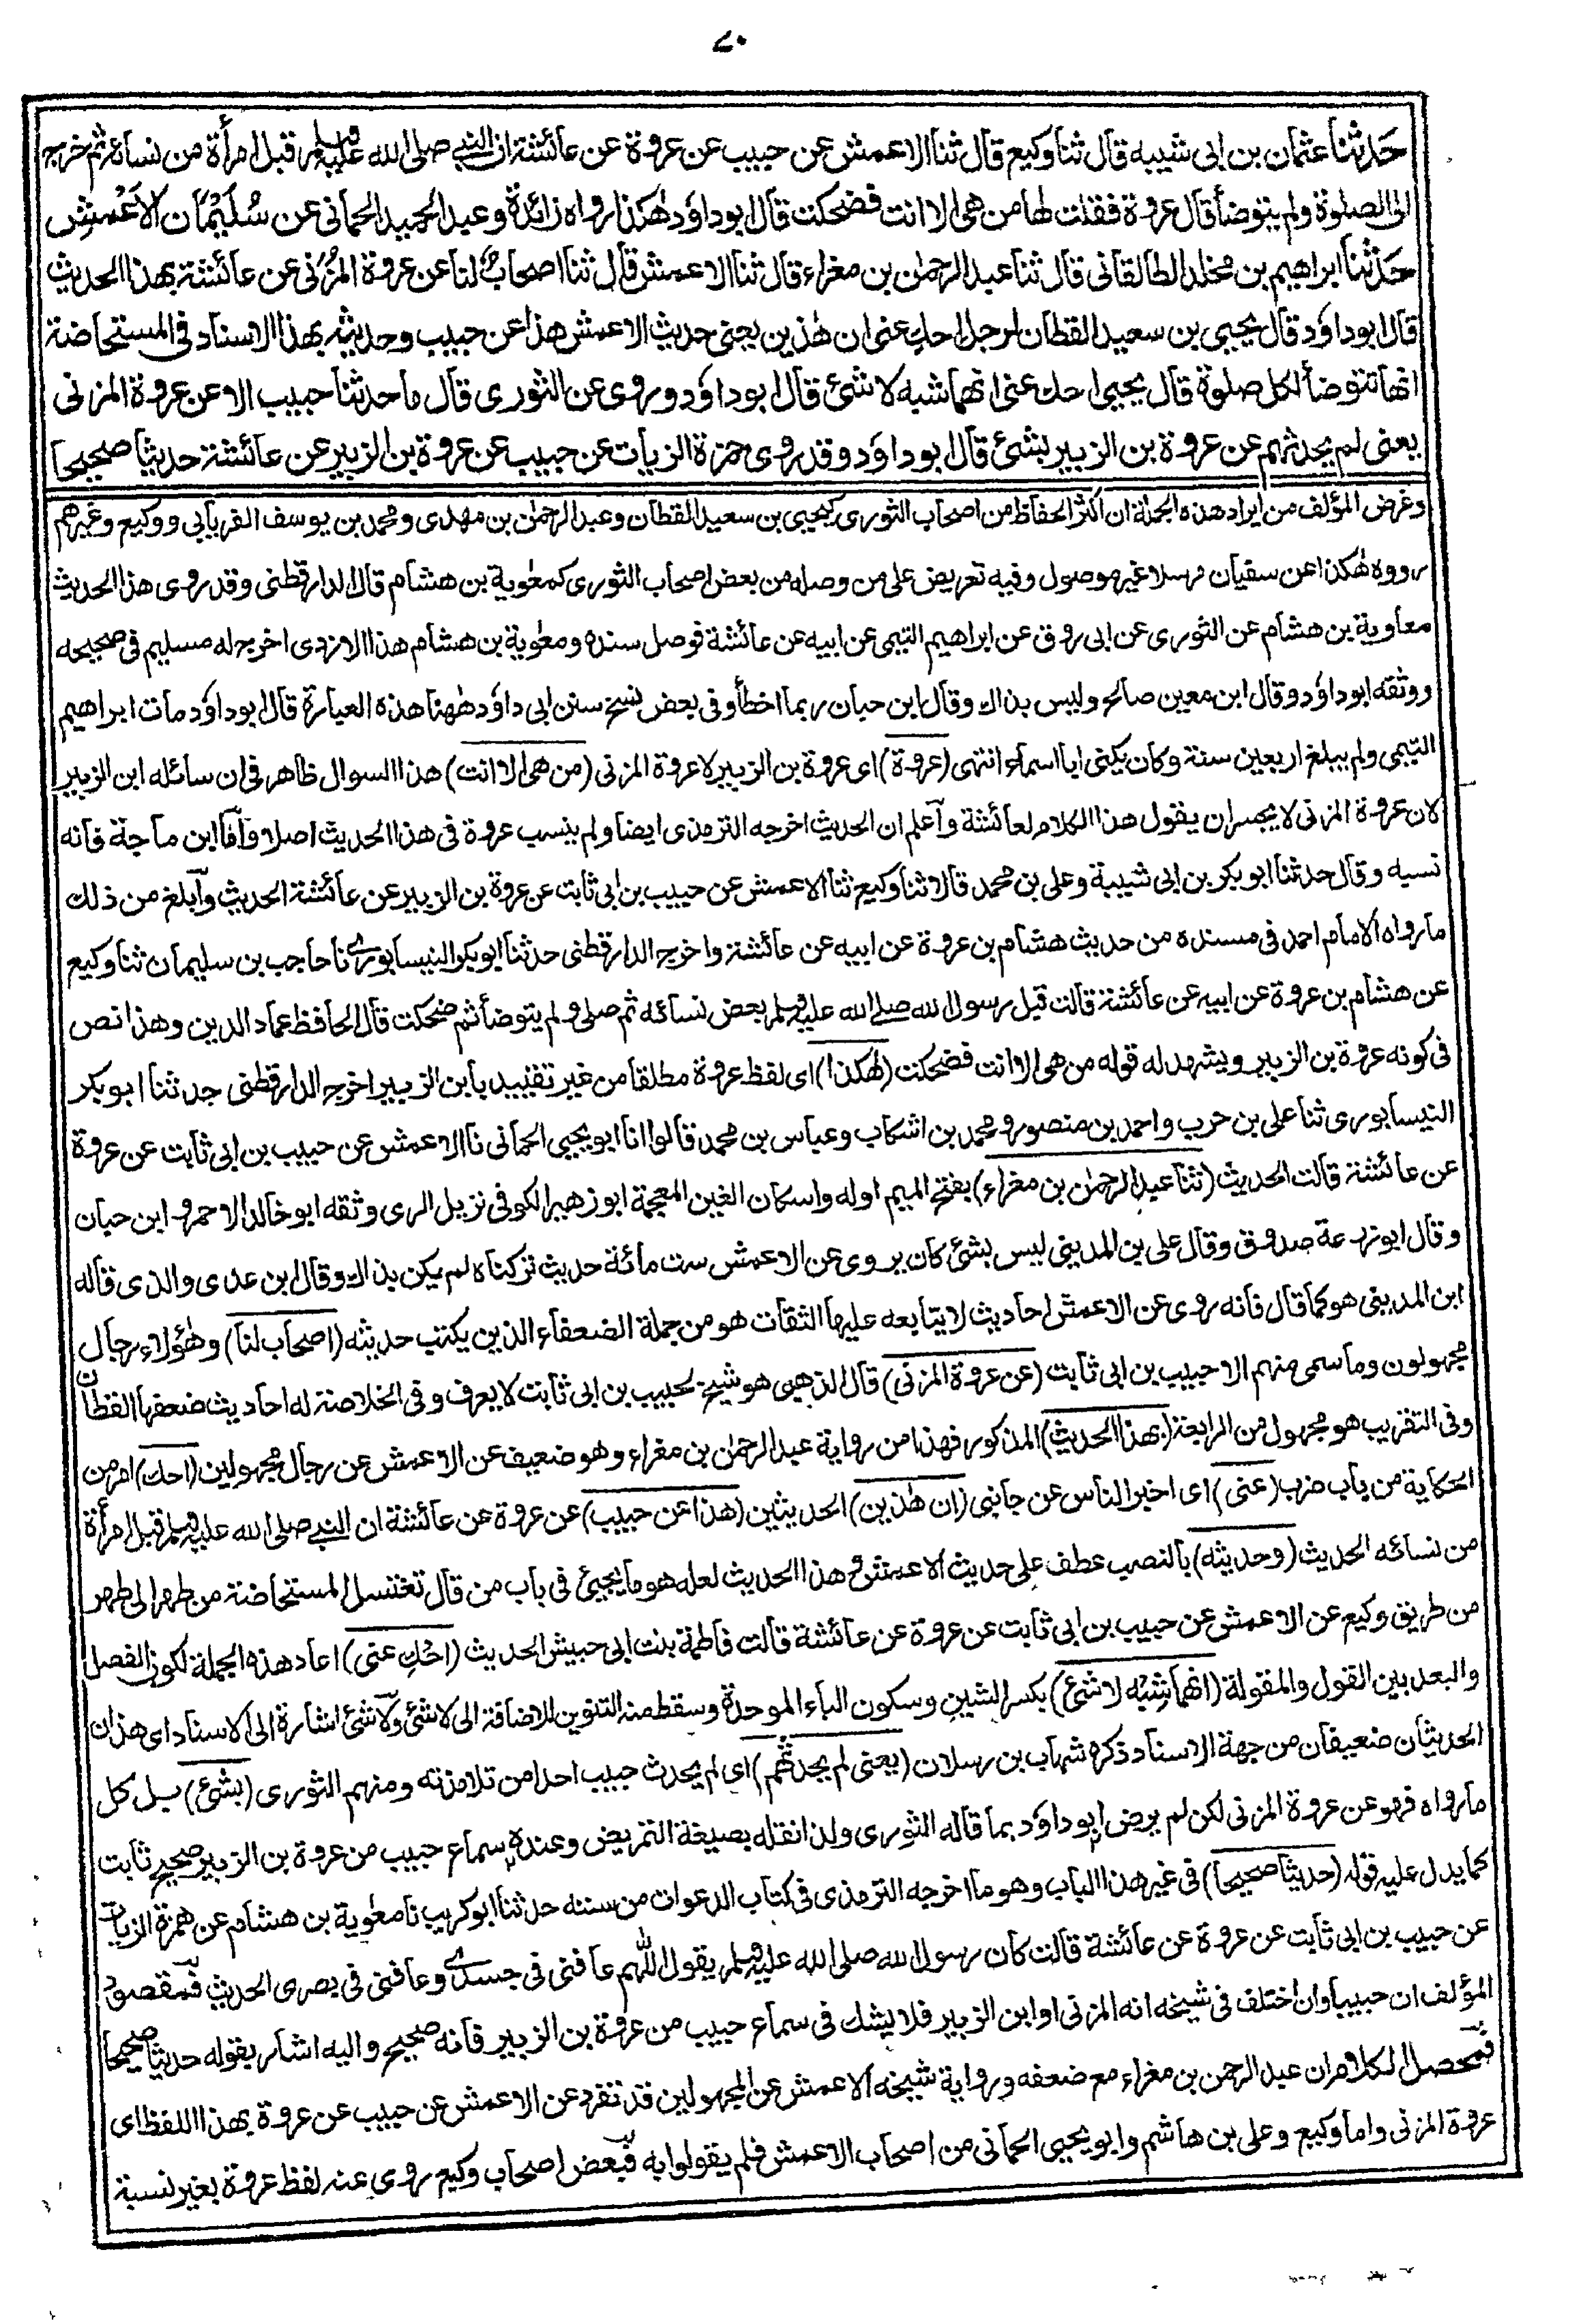 ٧٠
حدثنا عثمان بن ابى شيبه قال ثنا وكيع قال ثنا الاعمش عن حبيب عن عروة عن عائشة ان النبي صلى الله عليه وسلم قبل امرأة من نسائه ثم خرج
الى الصلوة ولم يتوضأ قال عروة فقلت لها من هى الا انت فضحكت قال ابو داؤد هٰكذا رواه زائدة وعبد الحميد الحمانى عن سُلَيْمَان الاَعْمَشِ
حدثنا ابراهيم بن مخلد الطالقانى قال ثنا عبد الرحمٰن بن مغراء قال ثنا الاعمش قال ثنا اصحابٌ لنا عن عروة المُزَنى عن عائشة بهذا الحديث
قال ابو داؤد قال يحيى بن سعيد القطان لرجل احكِ عنى ان هٰذين يعنى حديث الاعمش هذا عن حبيب وحديثه بهذا الاسناد فى المستحاضة
انها تتوضأ لكل صلوة قال يحيى احك عنى انهما شبه لا شئ قال ابو داؤد وروى عن الثورى قال ما حدثنا حبيب الا عن عروة المزنى
يعنى لم يحدثهم عن عروة بن الزبير بشئ قال ابو داؤد وقد روى حمزة الزيات عن حبيب عن عروة بن الزبير عن عائشة حديثا صحيحا
وغرض المؤلف من ايراد هذه الجملة ان اكثر الحفاظ من اصحاب الثورى كيحيى بن سعيد القطان وعبد الرحمٰن بن مهدى ومحمد بن يوسف الفريابي ووكيع وغيرهم
رووه هٰكذا عن سفيان مرسلا غير موصول وفيه تعريض على من وصله من بعض اصحاب الثورى كمعٰوية بن هشام قال الدارقطنى وقد روى هذا الحديث
معاوية بن هشام عن الثورى عن ابى روق عن ابراهيم التيمى عن ابيه عن عائشة فوصل سنده ومعٰوية بن هشام هذا الازدى اخرج له مسلم فى صحيحه
ووثقه ابو داؤد وقال ابن معين صالح وليس بذاك وقال ابن حبان ربما اخطأ وفى بعض نسخ سنن ابى داؤد هٰهنا هذه العبارة قال ابو داؤد مات ابراهيم
التيمى ولم يبلغ اربعين سنة وكان يكنى ابا اسماء انتهى (عروة) اى عروة بن الزبير لا عروة المزنى (من هى الا انت) هذا السوال ظاهر فى ان سائله ابن الزبير
لان عروة المزنى لا يجسر ان يقول هذا الكلام لعائشة وآعلم ان الحديث اخرجه الترمذى ايضا ولم ينسب عروة فى هذا الحديث اصلا وآما ابن ماجة فانه
نسبه وقال حدثنا ابو بكر بن ابى شيبة وعلى بن محمد قالا ثنا وكيع ثنا الاعمش عن حبيب بن ابى ثابت عن عروة بن الزبير عن عائشة الحديث وآبلغ من ذلك
ما رواه الامام احمد فى مسنده من حديث هشام بن عروة عن ابيه عن عائشة واخرج الدارقطنى حدثنا ابو بكر النيسابورى نا حاجب بن سليمان ثنا وكيع
عن هشام بن عروة عن ابيه عن عائشة قالت قبل رسول الله صلى الله عليه وسلم بعض نسائه ثم صلى ولم يتوضأ ثم ضحكت قال الحافظ عماد الدين وهذا نص
فى كونه عروة بن الزبير ويشهد له قوله من هى الا انت فضحكت (هٰكذا) اى لفظ عروة مطلقا من غير تقييد بابن الزبير اخرج الدارقطنى حدثنا ابو بكر
النيسابورى ثنا على بن حرب واحمد بن منصور ومحمد بن اشكاب وعباس بن محمد قالوا انا ابو يحيى الحمانى نا الاعمش عن حبيب بن ابى ثابت عن عروة
عن عائشة قالت الحديث (ثنا عبد الرحمٰن بن مغراء) بفتح الميم اوله واسكان الغين المعجمة ابو زهير الكوفى نزيل الرى وثقه ابو خالد الاحمر وابن حبان
وقال ابو زرعة صدوق وقال على بن المدينى ليس بشئ كان يروى عن الاعمش ست مائة حديث تركناه لم يكن بذاك وقال ابن عدى والذى قاله
ابن المدينى هو كما قال فانه روى عن الاعمش احاديث لا يتابعه عليها الثقات هو من جملة الضعفاء الذين يكتب حديثه (اصحاب لنا) وهٰؤلاء رجال
مجهولون وما سمى منهم الا حبيب بن ابى ثابت (عن عروة المزنى) قال الذهبى هو شيخ لحبيب بن ابى ثابت لا يعرف وفى الخلاصة له احاديث ضعفها القطان
وفى التقريب هو مجهول من الرابعة (بهذا الحديث) المذكور فهذا من رواية عبد الرحمٰن بن مغراء وهو ضعيف عن الاعمش عن رجال مجهولين (احك) امر من
الحكاية من باب ضرب (عنى) اى اخبر الناس عن جانبى (ان هٰذين) الحديثين (هذا عن حبيب) عن عروة عن عائشة ان النبي صلى الله عليه وسلم قبل امرأة
من نسائه الحديث (وحديثه) بالنصب عطف على حديث الاعمش وهذا الحديث لعله هو ما يجيئ فى باب من قال تغتسل المستحاضة من طهر الى طهر
من طريق وكيع عن الاعمش عن حبيب بن ابى ثابت عن عروة عن عائشة قالت فاطمة بنت ابى حبيش الحديث (احْكِ عنى) اعاد هذه الجملة لكون الفصل
والبعد بين القول والمقولة (انهما شِبْه لا شئ) بكسر الشين وسكون الباء الموحدة وسقط منه التنوين للاضافة الى لا شئ ولا شئ اشارة الى الاسناد اى هذان
الحديثان ضعيفان من جهة الاسناد ذكره شهاب بن رسلان (يعنى لم يحدثهم) اى لم يحدث حبيب احدا من تلامذته ومنهم الثورى (بشئ) بل كل
ما رواه فهو عن عروة المزنى لكن لم يرض ابو داؤد بما قاله الثورى ولذا نقله بصيغة التمريض وعنده سماع حبيب من عروة بن الزبير صحيح ثابت
كما يدل عليه قوله (حديثا صحيحا) فى غير هذا الباب وهو ما اخرجه الترمذى فى كتاب الدعوات من سننه حدثنا ابو كريب نا معٰوية بن هشام عن حمزة الزيات
عن حبيب بن ابى ثابت عن عروة عن عائشة قالت كان رسول الله صلى الله عليه وسلم يقول اللّٰهم عافنى فى جسدى وعافنى فى بصرى الحديث فمقصود
المؤلف ان حبيبا وان اختلف فى شيخه انه المزنى او ابن الزبير فلا يشك فى سماع حبيب من عروة بن الزبير فانه صحيح واليه اشار بقوله حديثا صحيحا
فمحصل الكلام ان عبد الرحمن بن مغراء مع ضعفه ورواية شيخه الاعمش عن المجهولين قد تفرد عن الاعمش عن حبيب عن عروة بهذا اللفظ اى
عروة المزنى واما وكيع وعلى بن هاشم وابو يحيى الحمانى من اصحاب الاعمش فلم يقولوا به فبعض اصحاب وكيع روى عنه لفظ عروة بغير نسبة